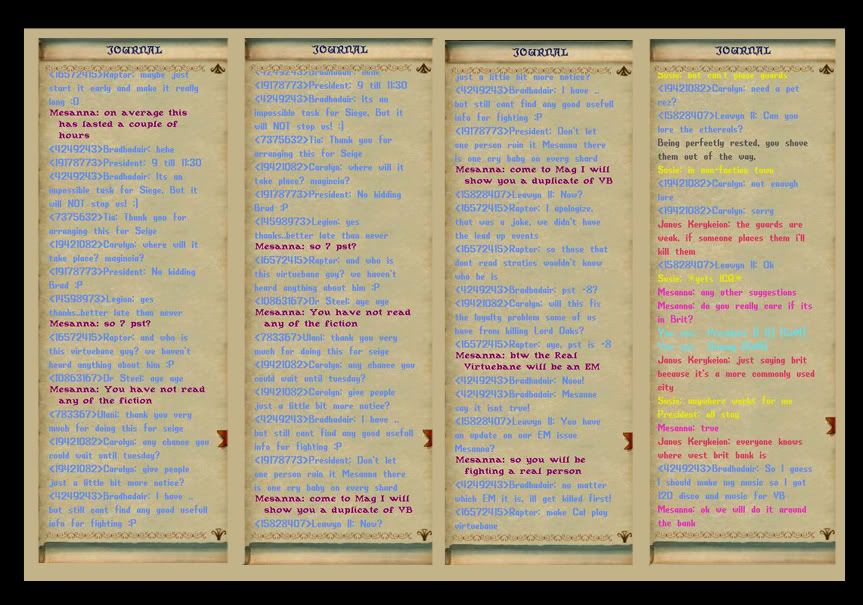 JOURNAL
<16572415>Raptor: maybe just
start it early and make it really
long :D
Mesanna: on average this
has lasted a couple of
hours
<4249243>Bradhadair: hehe
<19178773>President: 9 till 11:30
<4249243>Bradhadair: Its an
impossible task for Siege, But it
will NOT stop us! :]
<7375632>Tia: Thank you for
arranging this for Seige
<19421082>Carolyn: where will it
take place? magincia?
<19178773>President: No kidding
Brad :P
<14598973>Legion: yes
thanks..better late than never
Mesanna: so 7 pst?
<16572415>Raptor: and who is
this virtuebane guy? we haven't
heard anything about him :P
<10863167>Dr Steel: aye aye
Mesanna: You have not read
any of the fiction
<783367>Ulani: thank you very
much for doing this for seige
<19421082>Carolyn: any chance you
could wait until tuesday?
<19421082>Carolyn: give people
just a little bit more notice?
<4249243>Bradhadair: I have ..
but still cant find any good usefull
info for fighting :P
JOURNAL
<4249243>Bradhadair: hehe
<19178773>President: 9 till 11:30
<4249243>Bradhadair: Its an
impossible task for Siege, But it
will NOT stop us! :]
<7375632>Tia: Thank you for
arranging this for Seige
<19421082>Carolyn: where will it
take place? magincia?
<19178773>President: No kidding
Brad :P
<14598973>Legion: yes
thanks..better late than never
Mesanna: so 7 pst?
<16572415>Raptor: and who is
this virtuebane guy? we haven't
heard anything about him :P
<10863167>Dr Steel: aye aye
Mesanna: You have not read
any of the fiction
<783367>Ulani: thank you very
much for doing this for seige
<19421082>Carolyn: any chance you
could wait until tuesday?
<19421082>Carolyn: give people
just a little bit more notice?
<4249243>Bradhadair: I have ..
but still cant find any good usefull
info for fighting :P
<19178773>President: Don't let
one person ruin it Mesanna there
is one cry baby on every shard
Mesanna: come to Mag I will
show you a duplicate of VB
<15828407>Leawyn II: Now?
JOURNAL
just a little bit more notice?
<4249243>Bradhadair: I have ..
but still cant find any good usefull
info for fighting :P
<19178773>President: Don't let
one person ruin it Mesanna there
is one cry baby on every shard
Mesanna: come to Mag I will
show you a duplicate of VB
<15828407>Leawyn II: Now?
<16572415>Raptor: I apologize,
that was a joke, we didn't have
the lead up events
<16572415>Raptor: so those that
dont read stratics wouldn't know
who he is
<4249243>Bradhadair: pst -8?
<19421082>Carolyn: will this fix
the loyalty problem some of us
have from killing Lord Oaks?
<16572415>Raptor: aye, pst is -8
Mesanna: btw the Real
Virtuebane will be an EM
<4249243>Bradhadair: Nooo!
<4249243>Bradhadair: Mesanne
say it isnt true!
<15828407>Leawyn II: You have
an update on our EM issue
Mesanna?
Mesanna: so you will be
fighting a real person
<4249243>Bradhadair: no matter
which EM it is, ill get killed first!
<16572415>Raptor: make Cal play
virtuebane
JOURNAL
Susie: but can't place guards
<19421082>Carolyn: need a pet
rez?
<15828407>Leawyn II: Can you
lore the ethereals?
Being perfectly rested, you shove
them out of the way.
Susie: in non-faction town
<19421082>Carolyn: not enough
lore
<19421082>Carolyn: sorry
Janus Kerykeion: the guards are
weak, if someone places them i'll
kill them
<15828407>Leawyn II: Ok
Susie: *gets ICQ*
Mesanna: any other suggestions
Mesanna: do you really care if its
in Brit?
You see: President
You see:
Janus Kerykeion: just saying brit
because it's a more commonly used
city
Susie: anywhere works for me
President: all stay
Mesanna: true
Janus Kerykeion: everyone knows
where west brit bank is
<4249243>Bradhadair: So I guess
I should make my music so I got
120 disco and music for VB
Mesanna: ok we will do it around
the bank